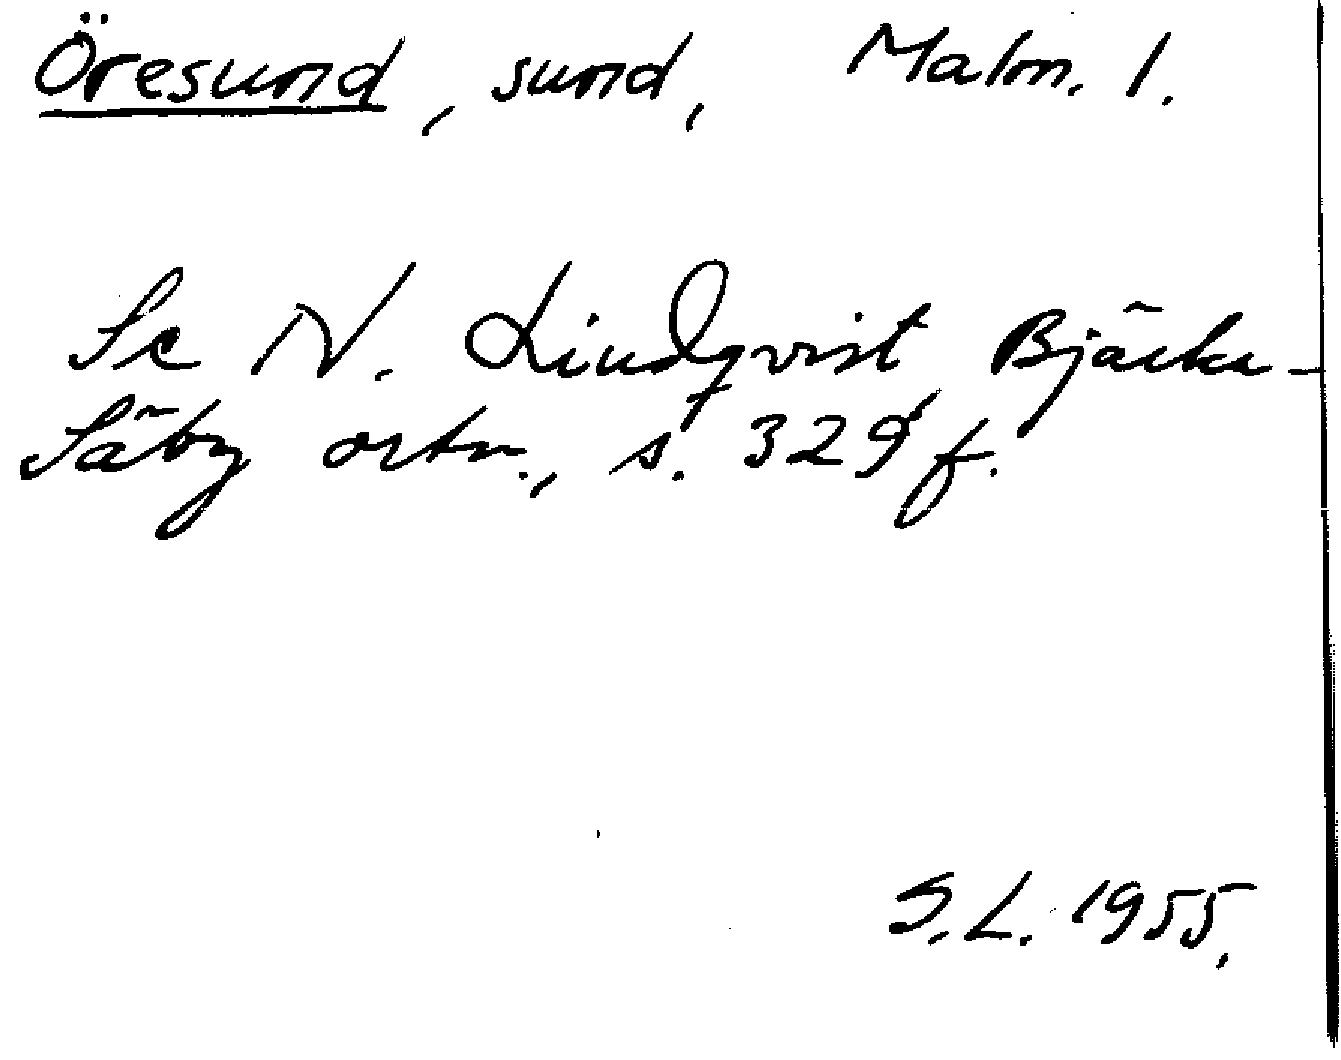 Öresund, sund, Malm. l.
Se N. Lindqvist Bjärka-
Säby ortn., s. 329 f.
S.L. 1955.